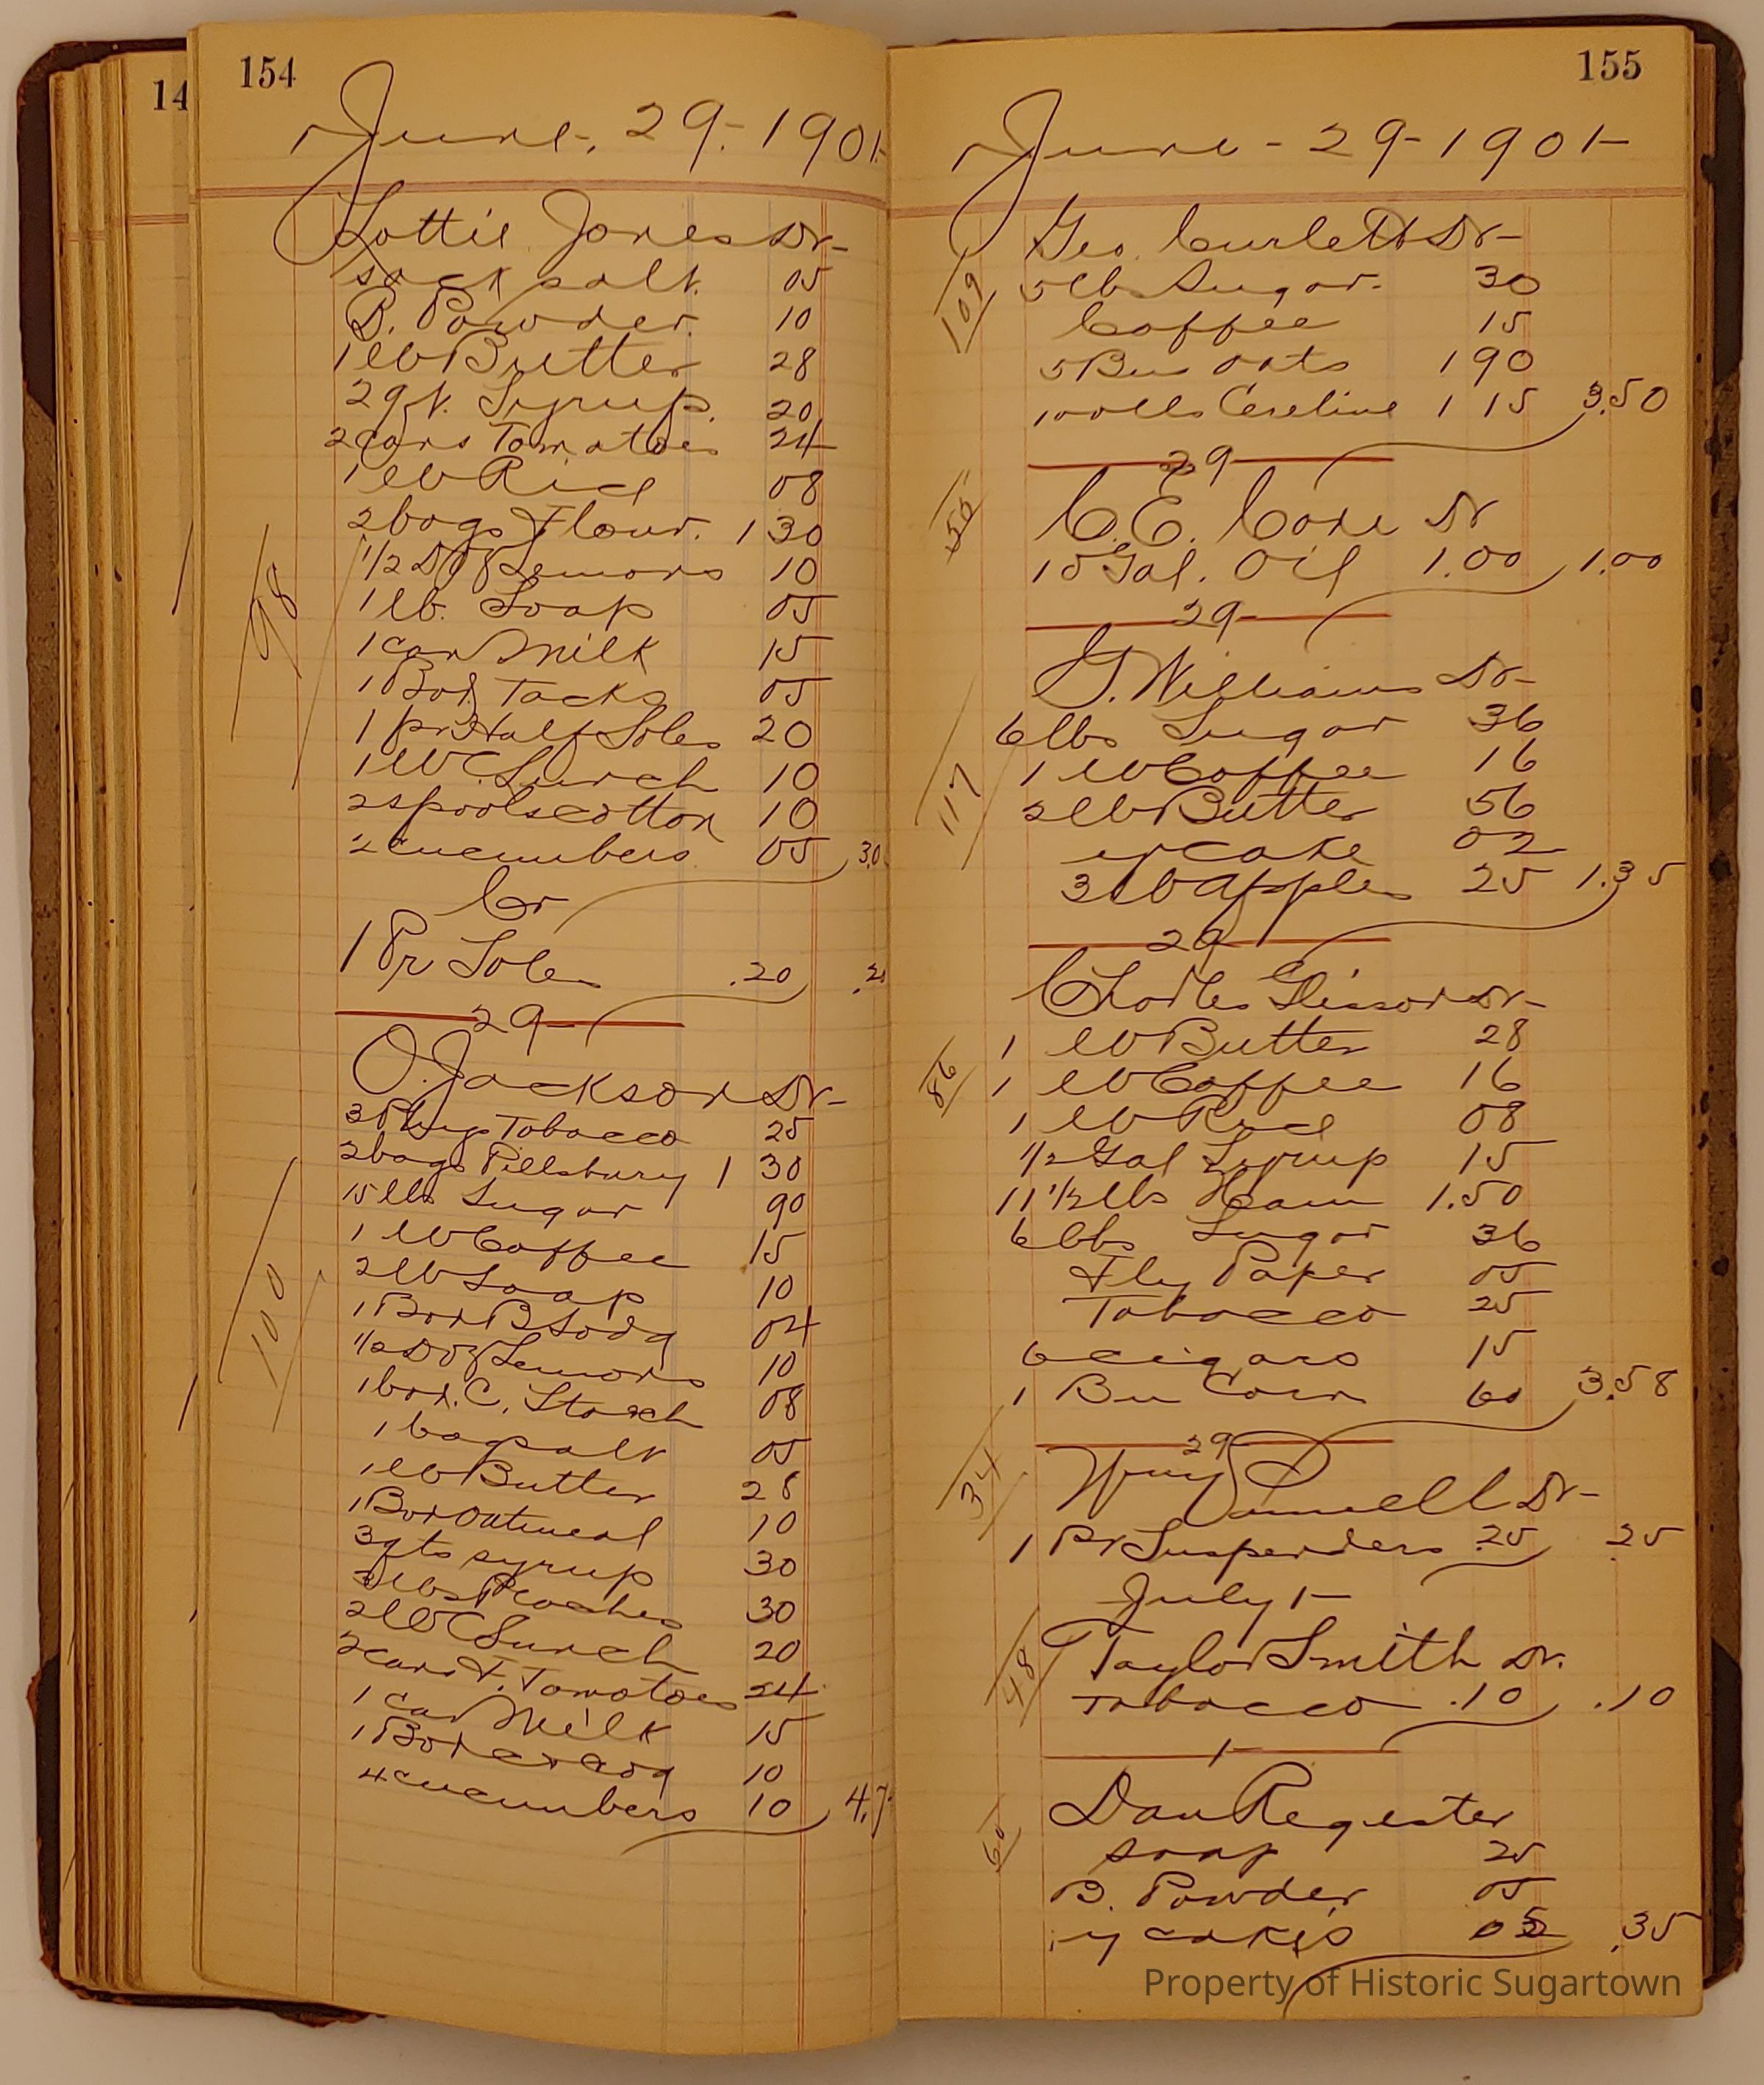 14
154
June, 29, 1901-
Lottie Jones Dr-
sack salt. 05
B. Powder. 10
1 lb Butter 28
2 qt. Syrup. 20
2 cans Tomatoes 24
1 lb Rice 08
2 bags Flour. 1 30
1/2 Doz Lemons 10
1 lb. Soap 05
1 can Milk 15
1 Box Tacks 05
1 pr Half Soles 20
1 lb C. Lunch 10
2 spools cotton 10
2 cucumbers 05 3.0
98
Cr
1 Pr Soles .20 .2
29-
O. Jackson Dr-
3 Plugs Tobacco 25
2 bags Pillsbury 1 30
15 lbs Sugar 90
1 lb Coffee 15
2 lb Soap 10
1 Box B Soda 04
1/2 Doz Lemons 10
1 box. C. Starch 08
1 bag salt 05
1 lb Butter 28
1 Box Oatmeal 10
3 qts syrup 30
lbs Peaches 30
2 lb C Lunch 20
2 cans F. Tomatoes 24
1 can Milk 15
1 Box 10
4 cucumbers 10 4.7
100
155
June - 29 - 1901-
Geo. Curlett Dr-
109
5 lbs Sugar. 30
Coffee 15
5 Bus Oats 1 90
100 lbs Cereline 1 15 3.50
29-
56
C. E. Cone Dr
10 Gal. Oil 1.00 1.00
29-
G. Williams Dr-
6 lbs Sugar 36
1 lb Coffee 16
2 lb Butter 56
y cake 02
3 lb Apples 25 1.35
117
29-
Charles Glisson Dr-
1 lb Butter 28
86
1 lb Coffee 16
1 lb Rice 08
1/2 Gal Syrup 15
11 1/2 lbs Ham 1.50
6 lbs Sugar 36
Fly Paper 05
Tobacco 25
6 cigars 15
1 Bu Corn 60 3.58
29
34
Wm Dr-
1 Pr Suspenders .25 .25
July 1-
48
Taylor Smith Dr.
Tobacco .10 .10
1-
Dan Regester
60
soap 25
B. Powder 05
y cakes 05 .35
Property of Historic Sugartown